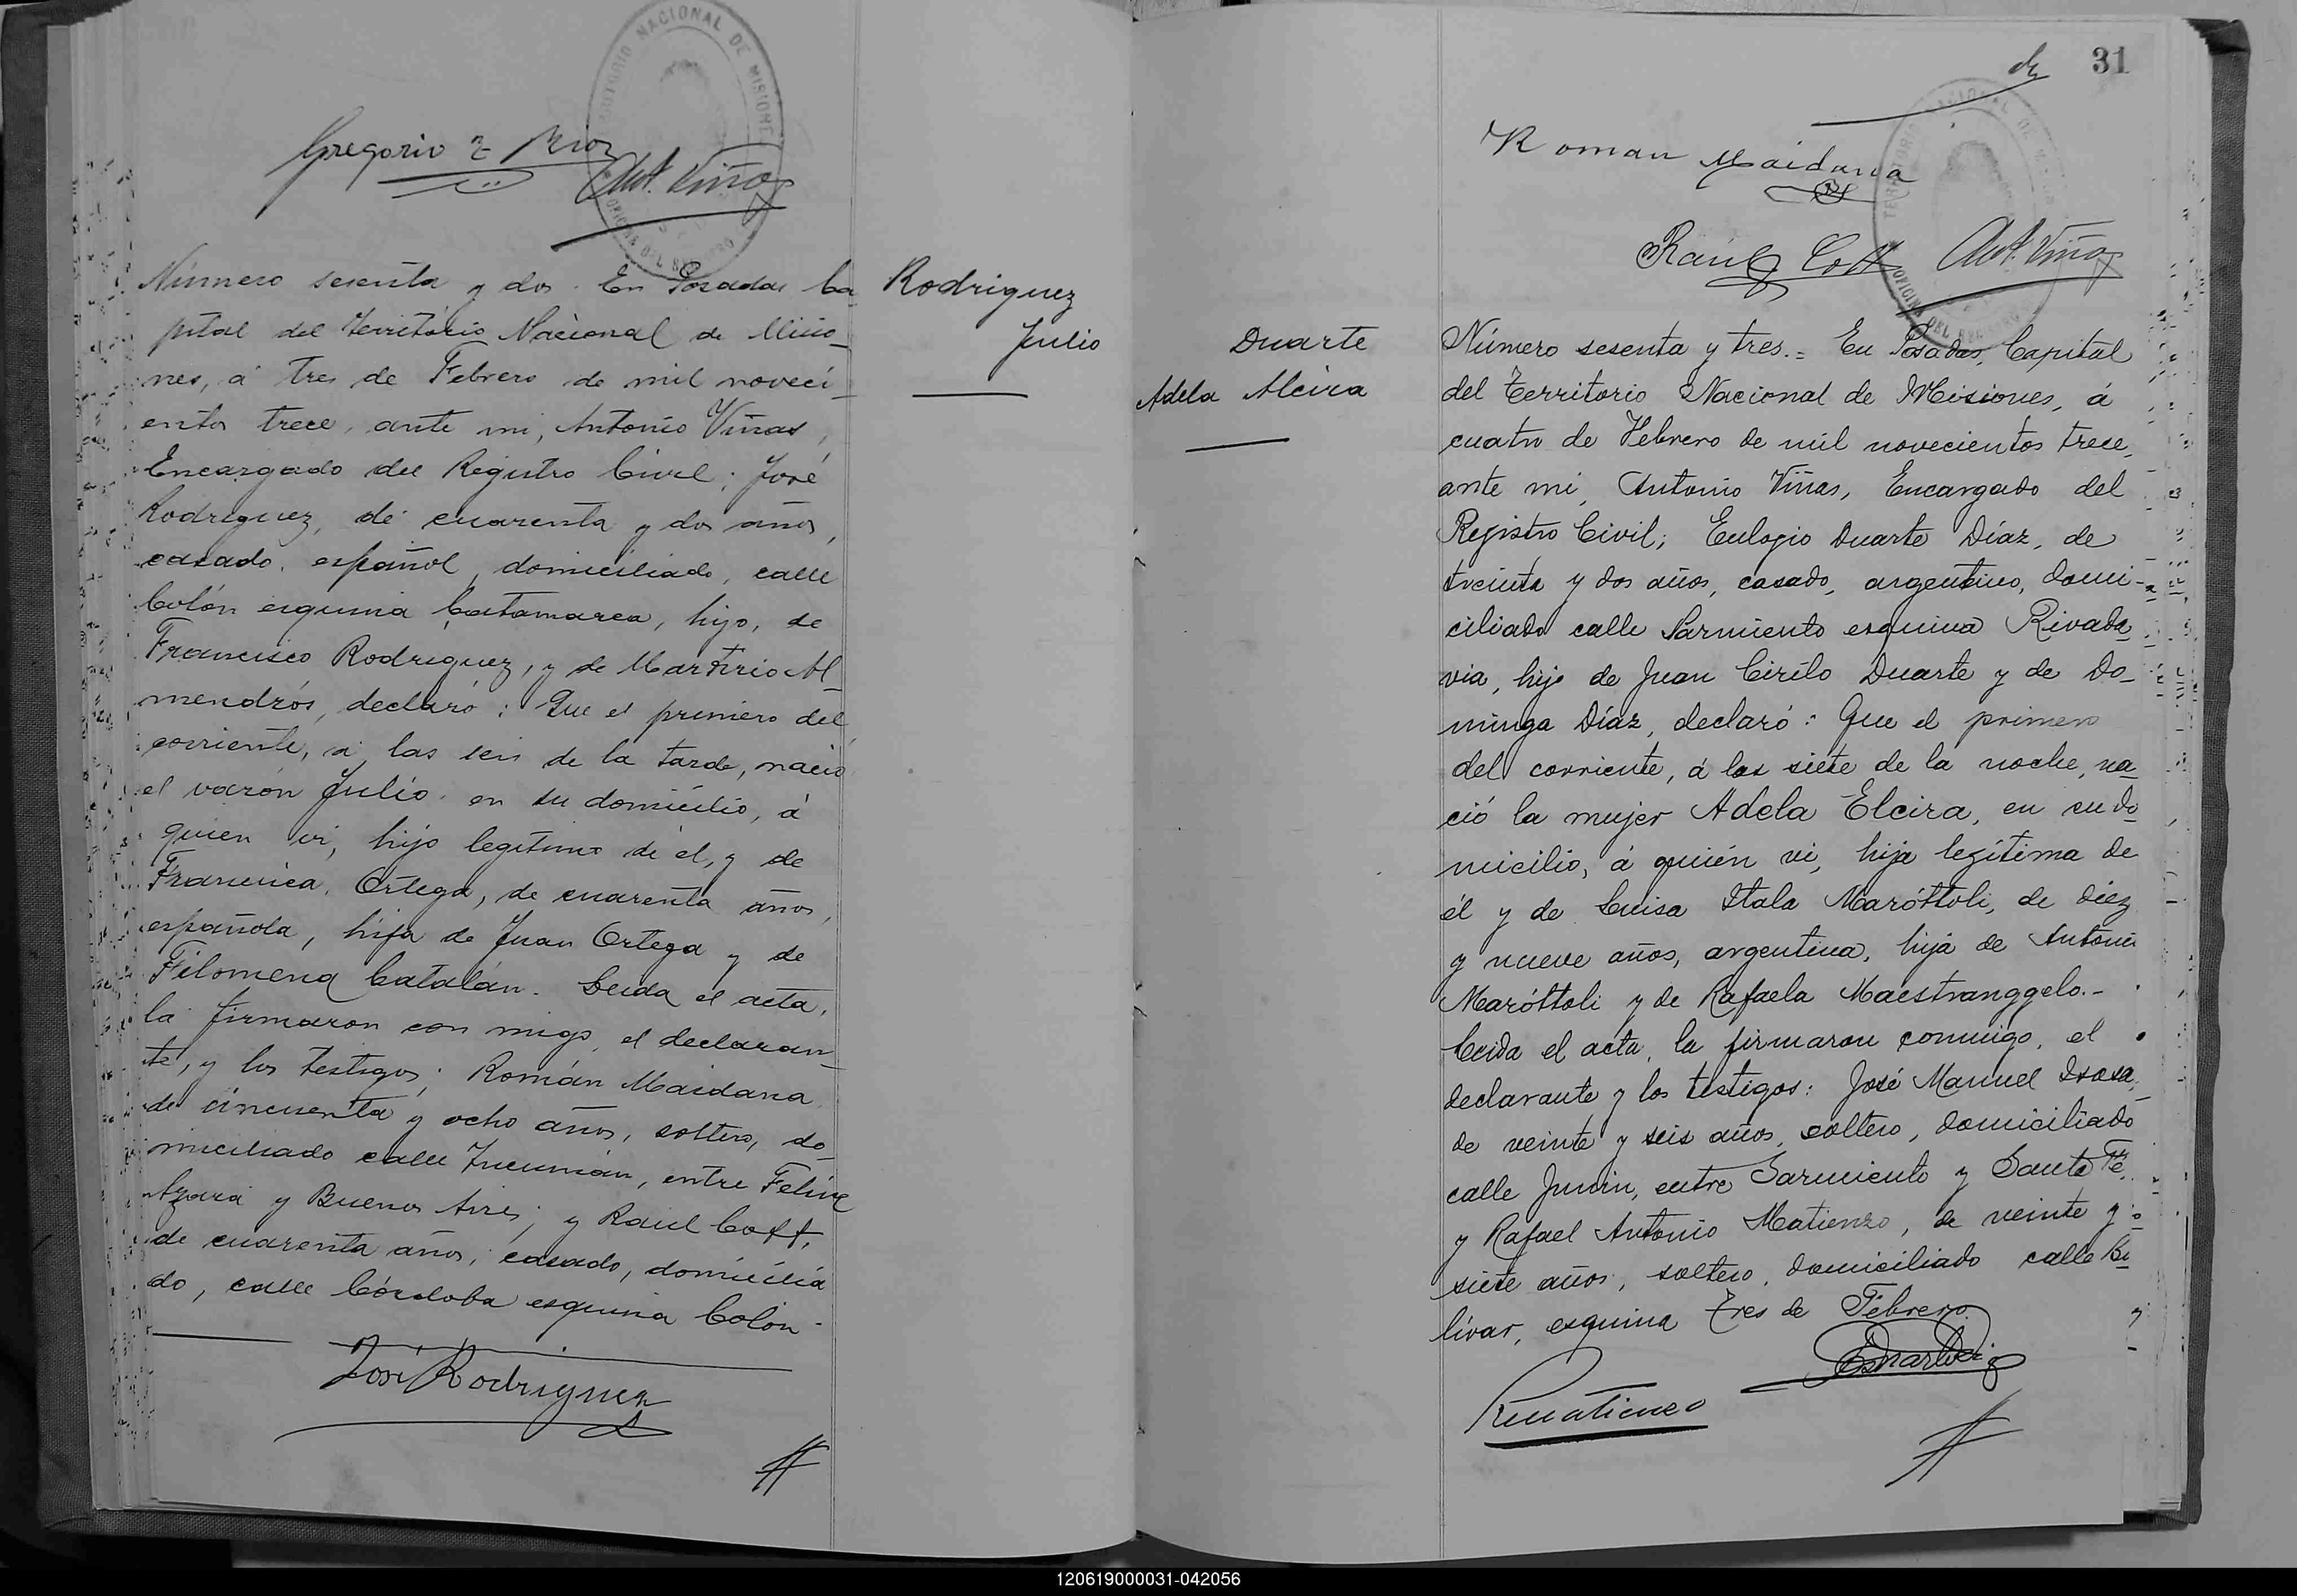 TERRITORIO NACIONAL DE MISIONES
OFICINA DEL REGISTRO
Gregorio
Ant. Viñas
Número sesenta y dos. En Posadas Ca
pital del Territorio Nacional de Misio_
nes, á tres de Febrero de mil noveci_
entos trece, ante mi, Antonio Viñas,
Encargado del Registro Civil; José
Rodriguez, de cuarenta y dos años,
casado, español, domiciliado, calle
Colón esquina Catamarca, hijo, de
Francisco Rodriguez, y de Martirio Al_
mendrós, declaró: Que el primero del
corriente, á las seis de la tarde, nació
el varón Julio en su domicilio, á
quien vi, hijo legitimo de él, y de
Francisca Ortega, de cuarenta años,
española, hija de Juan Ortega y de
Filomena Catalán. Leida el acta,
la firmaron con migo, el declaran_
te, y los testigos; Román Maidana
de cincuenta y ocho años, soltero, do_
miciliado calle Tucumán, entre Felix
Azara y Buenos Aires; y Raul Cott,
de cuarenta años, casado, domicilia
do, calle Córdoba esquina Colón-
José Rodriguez
Rodriguez
Julio
31
Roman Maidana
Raúl Cott
Ant. Viñas
TERRITORIO NACIONAL DE MISIONES
OFICINA DEL REGISTRO
Duarte
Adela Alcira
Número sesenta y tres.= En Posadas, Capital
del Territorio Nacional de Misiones, á
cuatro de Febrero de mil novecientos trece,
ante mi, Antonio Viñas, Encargado del
Registro Civil; Eulogio Duarte Díaz, de
treinta y dos años, casado, argentino, domi-
ciliado calle Sarmiento esquina Rivada
via, hijo de Juan Cirilo Duarte y de Do_
minga Díaz, declaró: Que el primero
del corriente, á las siete de la noche, na_
ció la mujer Adela Elcira, en su do
micilio, á quién vi, hija legítima de
él y de Luisa Itala Maróttoli, de diez
y nueve años, argentina, hija de Antonio
Maróttoli y de Rafaela Maestranggelo.-
Leida el acta, la firmaron conmigo, el
declarante y los testigos: José Manuel Isasa,
de veinte y seis años, soltero, domiciliado
calle Junin, entre Sarmiento y Santa Fé,
y Rafael Antonio Matienzo, de veinte y
siete años, soltero, domiciliado calle Bo
lívar, esquina Tres de Febrero.
EDuarte Diaz
RMatienzo
120619000031-042056